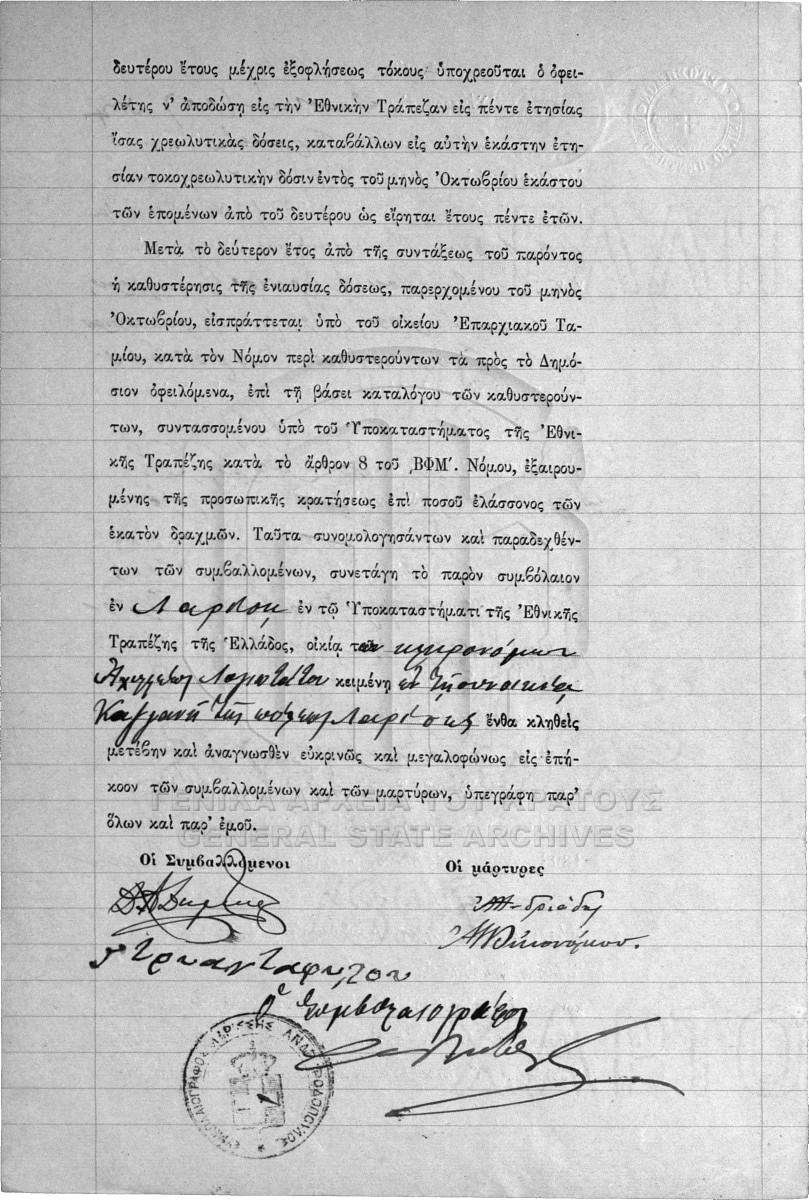 δευτέρου ἔτους μέχρις ἐξοφλήσεως τόκους ὑποχρεοῦται ὁ ὀφει-
λέτης ν' ἀποδώσῃ εἰς τὴν Ἐθνικὴν Τράπεζαν εἰς πέντε ἐτησίας
ἴσας χρεωλυτικὰς δόσεις, καταβάλλων εἰς αὐτὴν ἑκάστην ἐτη-
σίαν τοκοχρεωλυτικὴν δόσιν ἐντὸς τοῦ μηνὸς Ὀκτωβρίου ἑκάστου
τῶν ἑπομένων ἀπὸ τοῦ δευτέρου ὡς εἴρηται ἔτους πέντε ἐτῶν.
Μετὰ τὸ δεύτερον ἔτος ἀπὸ τῆς συντάξεως τοῦ παρόντος
ἡ καθυστέρησις τῆς ἐνιαυσίας δόσεως, παρερχομένου τοῦ μηνὸς
Ὀκτωβρίου, εἰσπράττεται ὑπὸ τοῦ οἰκείου Ἐπαρχιακοῦ Τα-
μίου, κατὰ τὸν Νόμον περὶ καθυστερούντων τὰ πρὸς τὸ Δημό-
σιον ὀφειλόμενα, ἐπὶ τῇ βάσει καταλόγου τῶν καθυστερούν-
των, συντασσομένου ὑπὸ τοῦ Ὑποκαταστήματος τῆς Ἐθνι-
κῆς Τραπέζης κατὰ τὸ ἄρθρον 8 τοῦ ͵ΒΦΜ′. Νόμου, ἐξαιρου-
μένης τῆς προσωπικῆς κρατήσεως ἐπὶ ποσοῦ ἐλάσσονος τῶν
ἑκατὸν δραχμῶν. Ταῦτα συνομολογησάντων καὶ παραδεχθέν-
των τῶν συμβαλλομένων, συνετάγη τὸ παρὸν συμβόλαιον
ἐν Λαρίσῃ ἐν τῷ Ὑποκαταστήματι τῆς Ἐθνικῆς
Τραπέζης τῆς Ἑλλάδος, οἰκίᾳ τῶν κληρονόμων
Ἀχιλλέως Λογιωτάτου κειμένῃ ἐν τῇ συνοικίᾳ
τῆς πόλεως Λαρίσης ἔνθα κληθεὶς
μετέβην καὶ ἀναγνωσθὲν εὐκρινῶς καὶ μεγαλοφώνως εἰς ἐπή-
κοον τῶν συμβαλλομένων καὶ τῶν μαρτύρων, ὑπεγράφη παρ'
ὅλων καὶ παρ' ἐμοῦ.
ΓΕΝΙΚΑ ΑΡΧΕΙΑ ΤΟΥ ΚΡΑΤΟΥΣ
GENERAL STATE ARCHIVES
Οἱ Συμβαλλόμενοι
Οἱ μάρτυρες
Οἰκονόμου.
Τριανταφύλλου
Ὁ Συμβολαιογράφος
ΣΥΜΒΟΛΑΙΟΓΡΑΦΟΣ ΛΑΡΙΣΣΗΣ